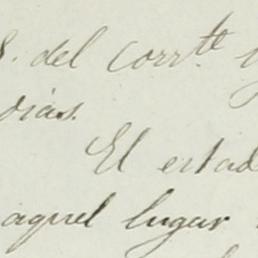 8. del corr.te y
dias.
El estad
aquel lugar